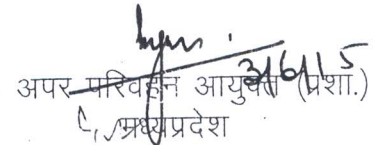 3/6/15
अपर परिवहन आयुक्त (प्रशा.)
मध्यप्रदेश